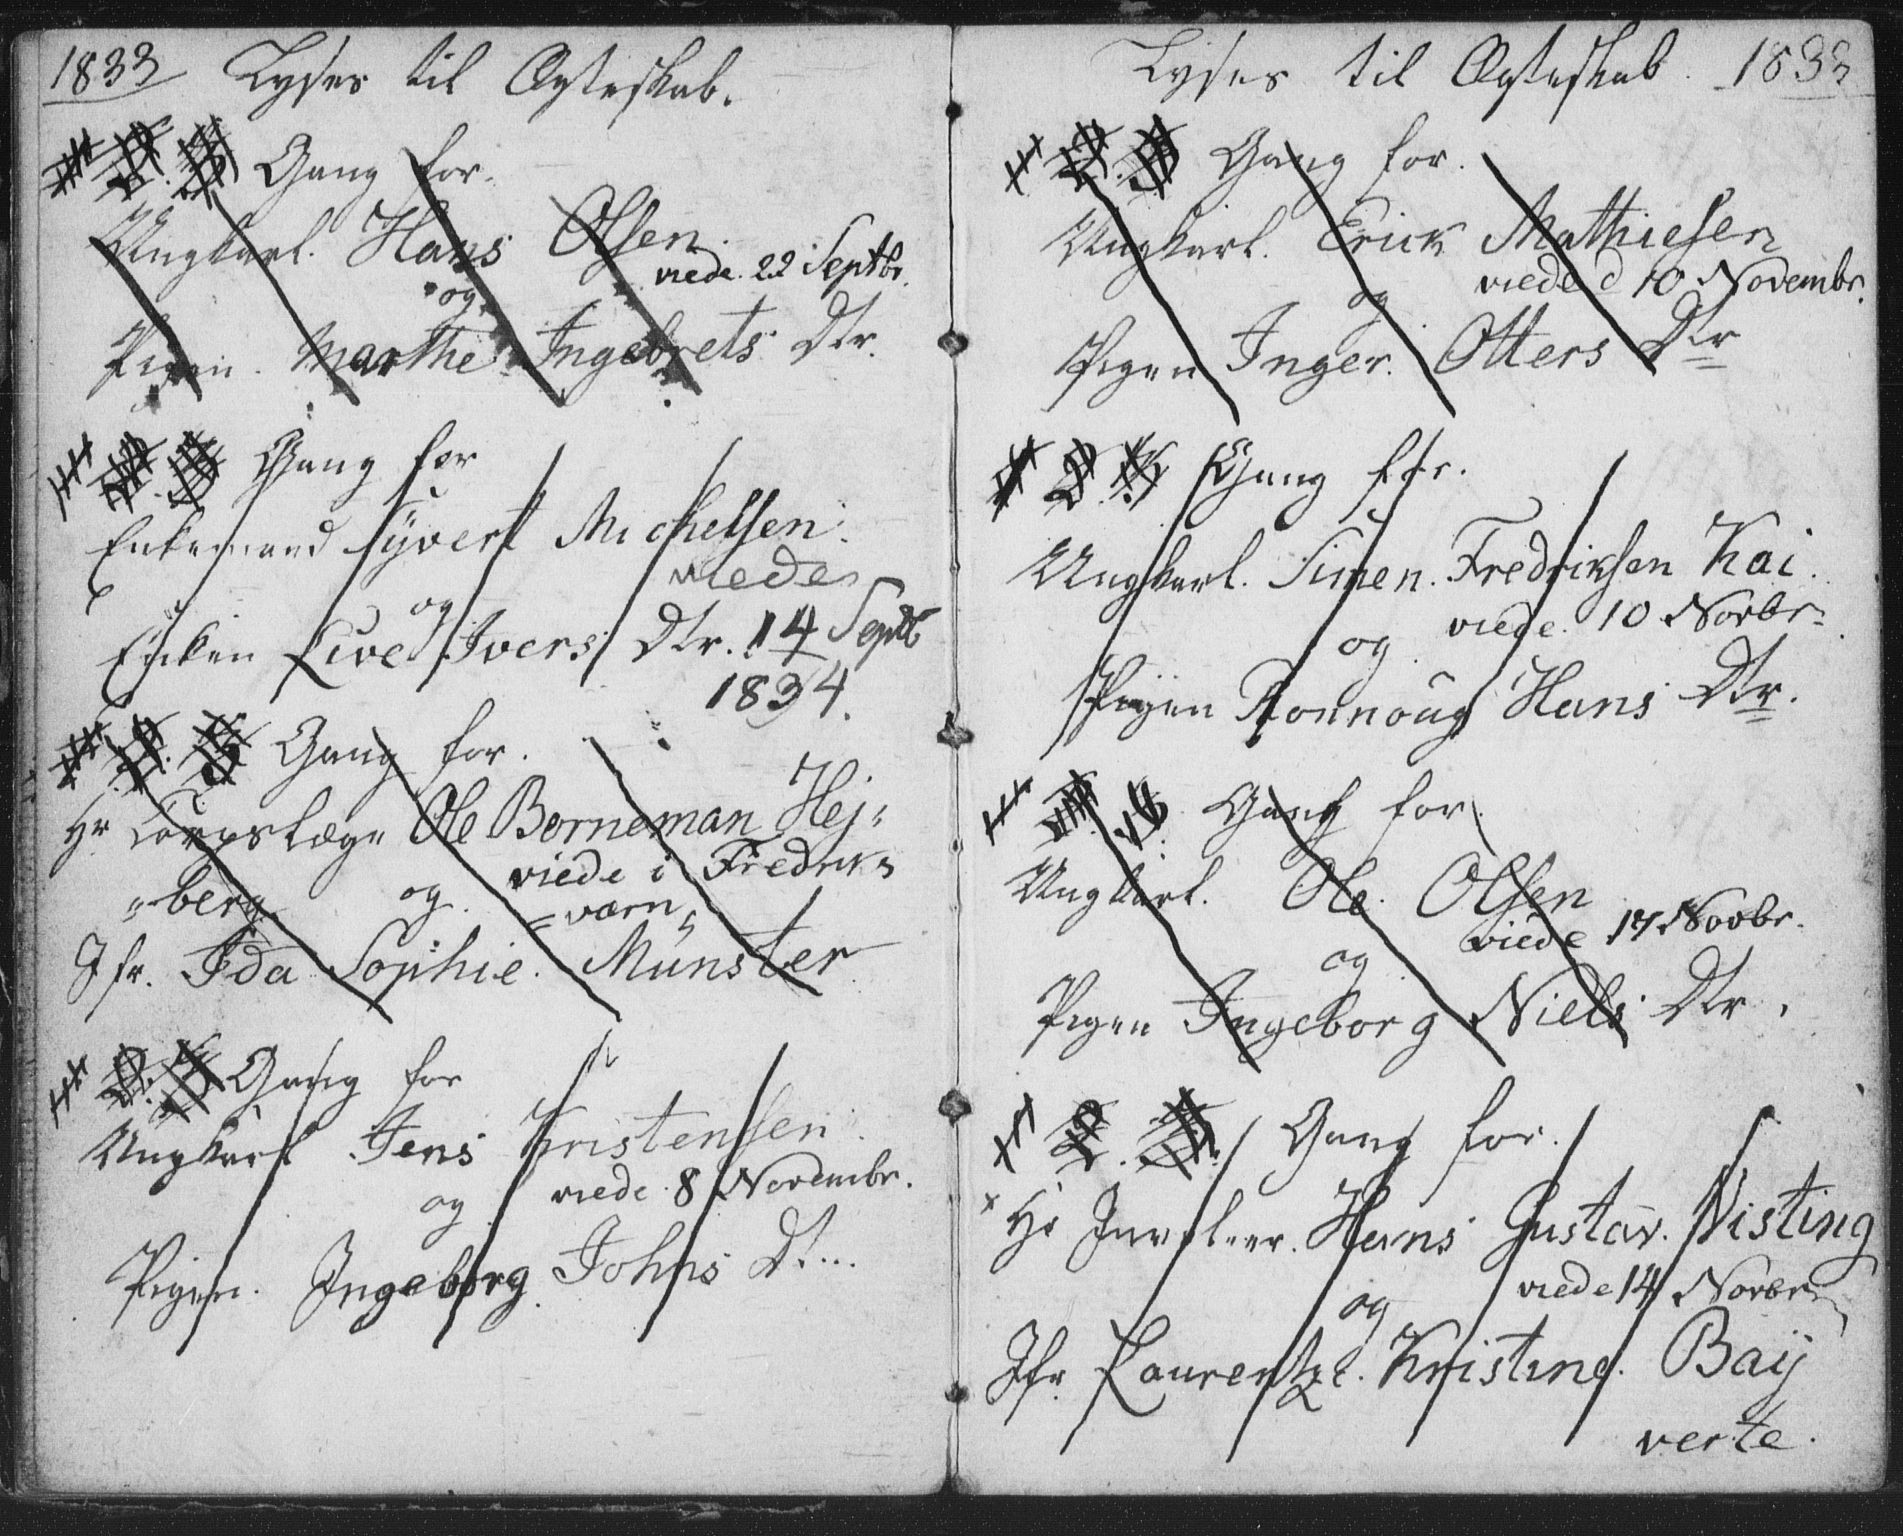 1833 Lyses til Ægteskab.
1. 2. 3. Gang for.
Ungkarl. Hans Olsen.
viede 22 Septbr.
og
Pigen. Marthe Ingebrets Dtr.
1. 2. 3. Gang for
Enkemand Syvert Michelsen.
viede
og
Enken Live Ivers Dtr. 14 Septb
1834.
1. 2. 3. Gang for.
Hr Corpslæge Ole Borneman Hej=
=berg og viede i Fredriks
=værn
Jfr. Ida Sophie Münster
1. 2. 3. Gang for
Ungkarl Jens Kristensen
og viede 8 Novembr.
Pigen. Ingeborg Johns Dt...
Lyses til Ægteskab. 1833
1. 2. 3. Gang for.
Ungkarl. Erick Mathiesen
viede d 10 Novembr.
og
Pigen Inger. Otters Dtr
1. 2. 3. Gang for.
Ungkarl. Simen. Fredriksen Kai.
og viede 10 Novbr.
Pigen Ronnoug Hans Dtr.
1. 2. 3. Gang for.
Ungkarl. Ole. Olsen
viede 17 Novbr.
og
Pigen Ingeborg Niels Dtr.
1. 2. 3. Gang for.
Hr Hans Gustav. Wisting
viede 14 Novbr
og
Jfr Laurentze. Kristine. Baÿ
verte.